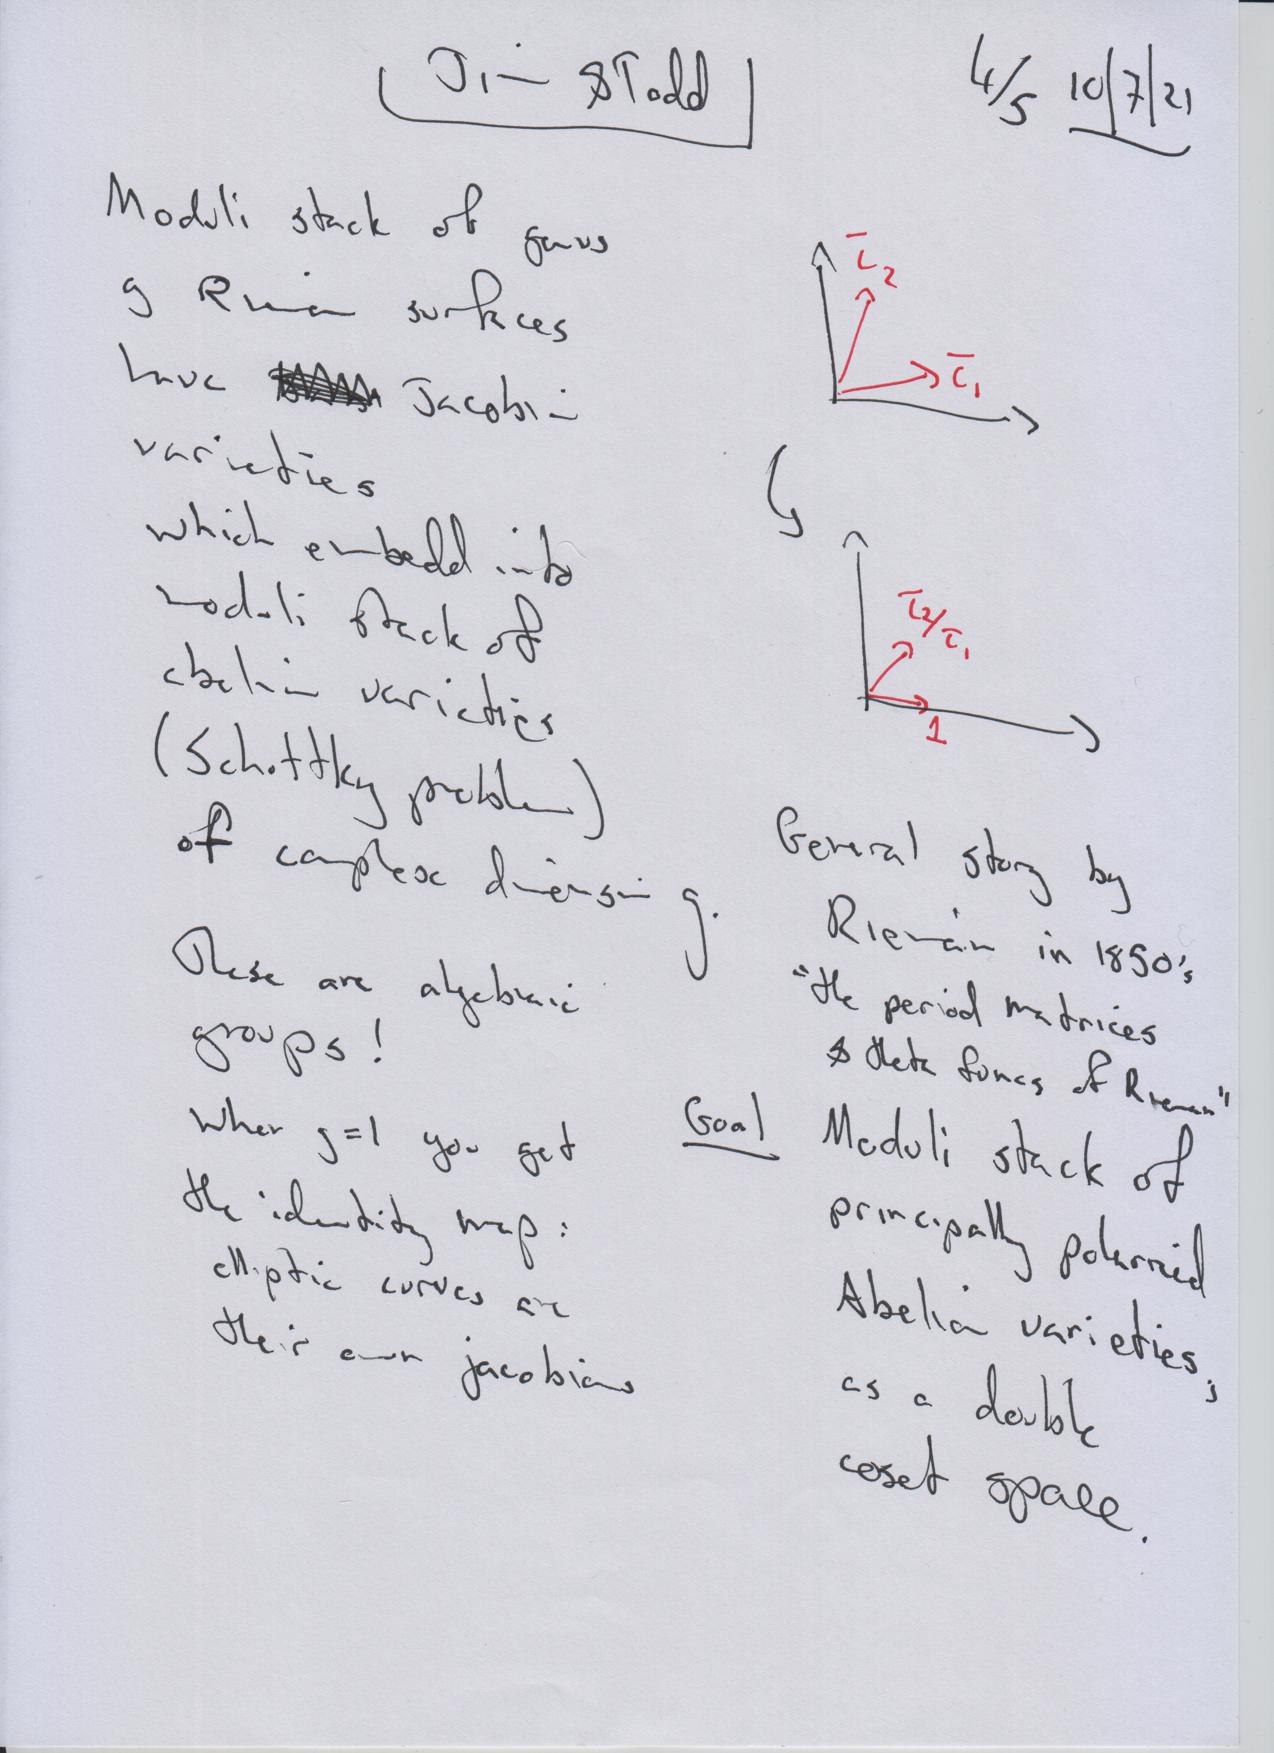 Jim & Todd
4/5 10/7/21
Moduli stack of genus
g Riemann surfaces
have Jacobian
varieties
which embedd into
moduli stack of
abelian varieties
(Schottky problem)
of complex dimension g.
These are algebraic
groups!
When g=1 you get
the identity map:
elliptic curves are
their own jacobians
τ2
τ1
τ2/τ1
1
General story by
Riemann in 1850's
"the period matrices
& theta funcs of Riemann"
Goal Moduli stack of
principally polarized
Abelian varieties,
as a double
coset space.